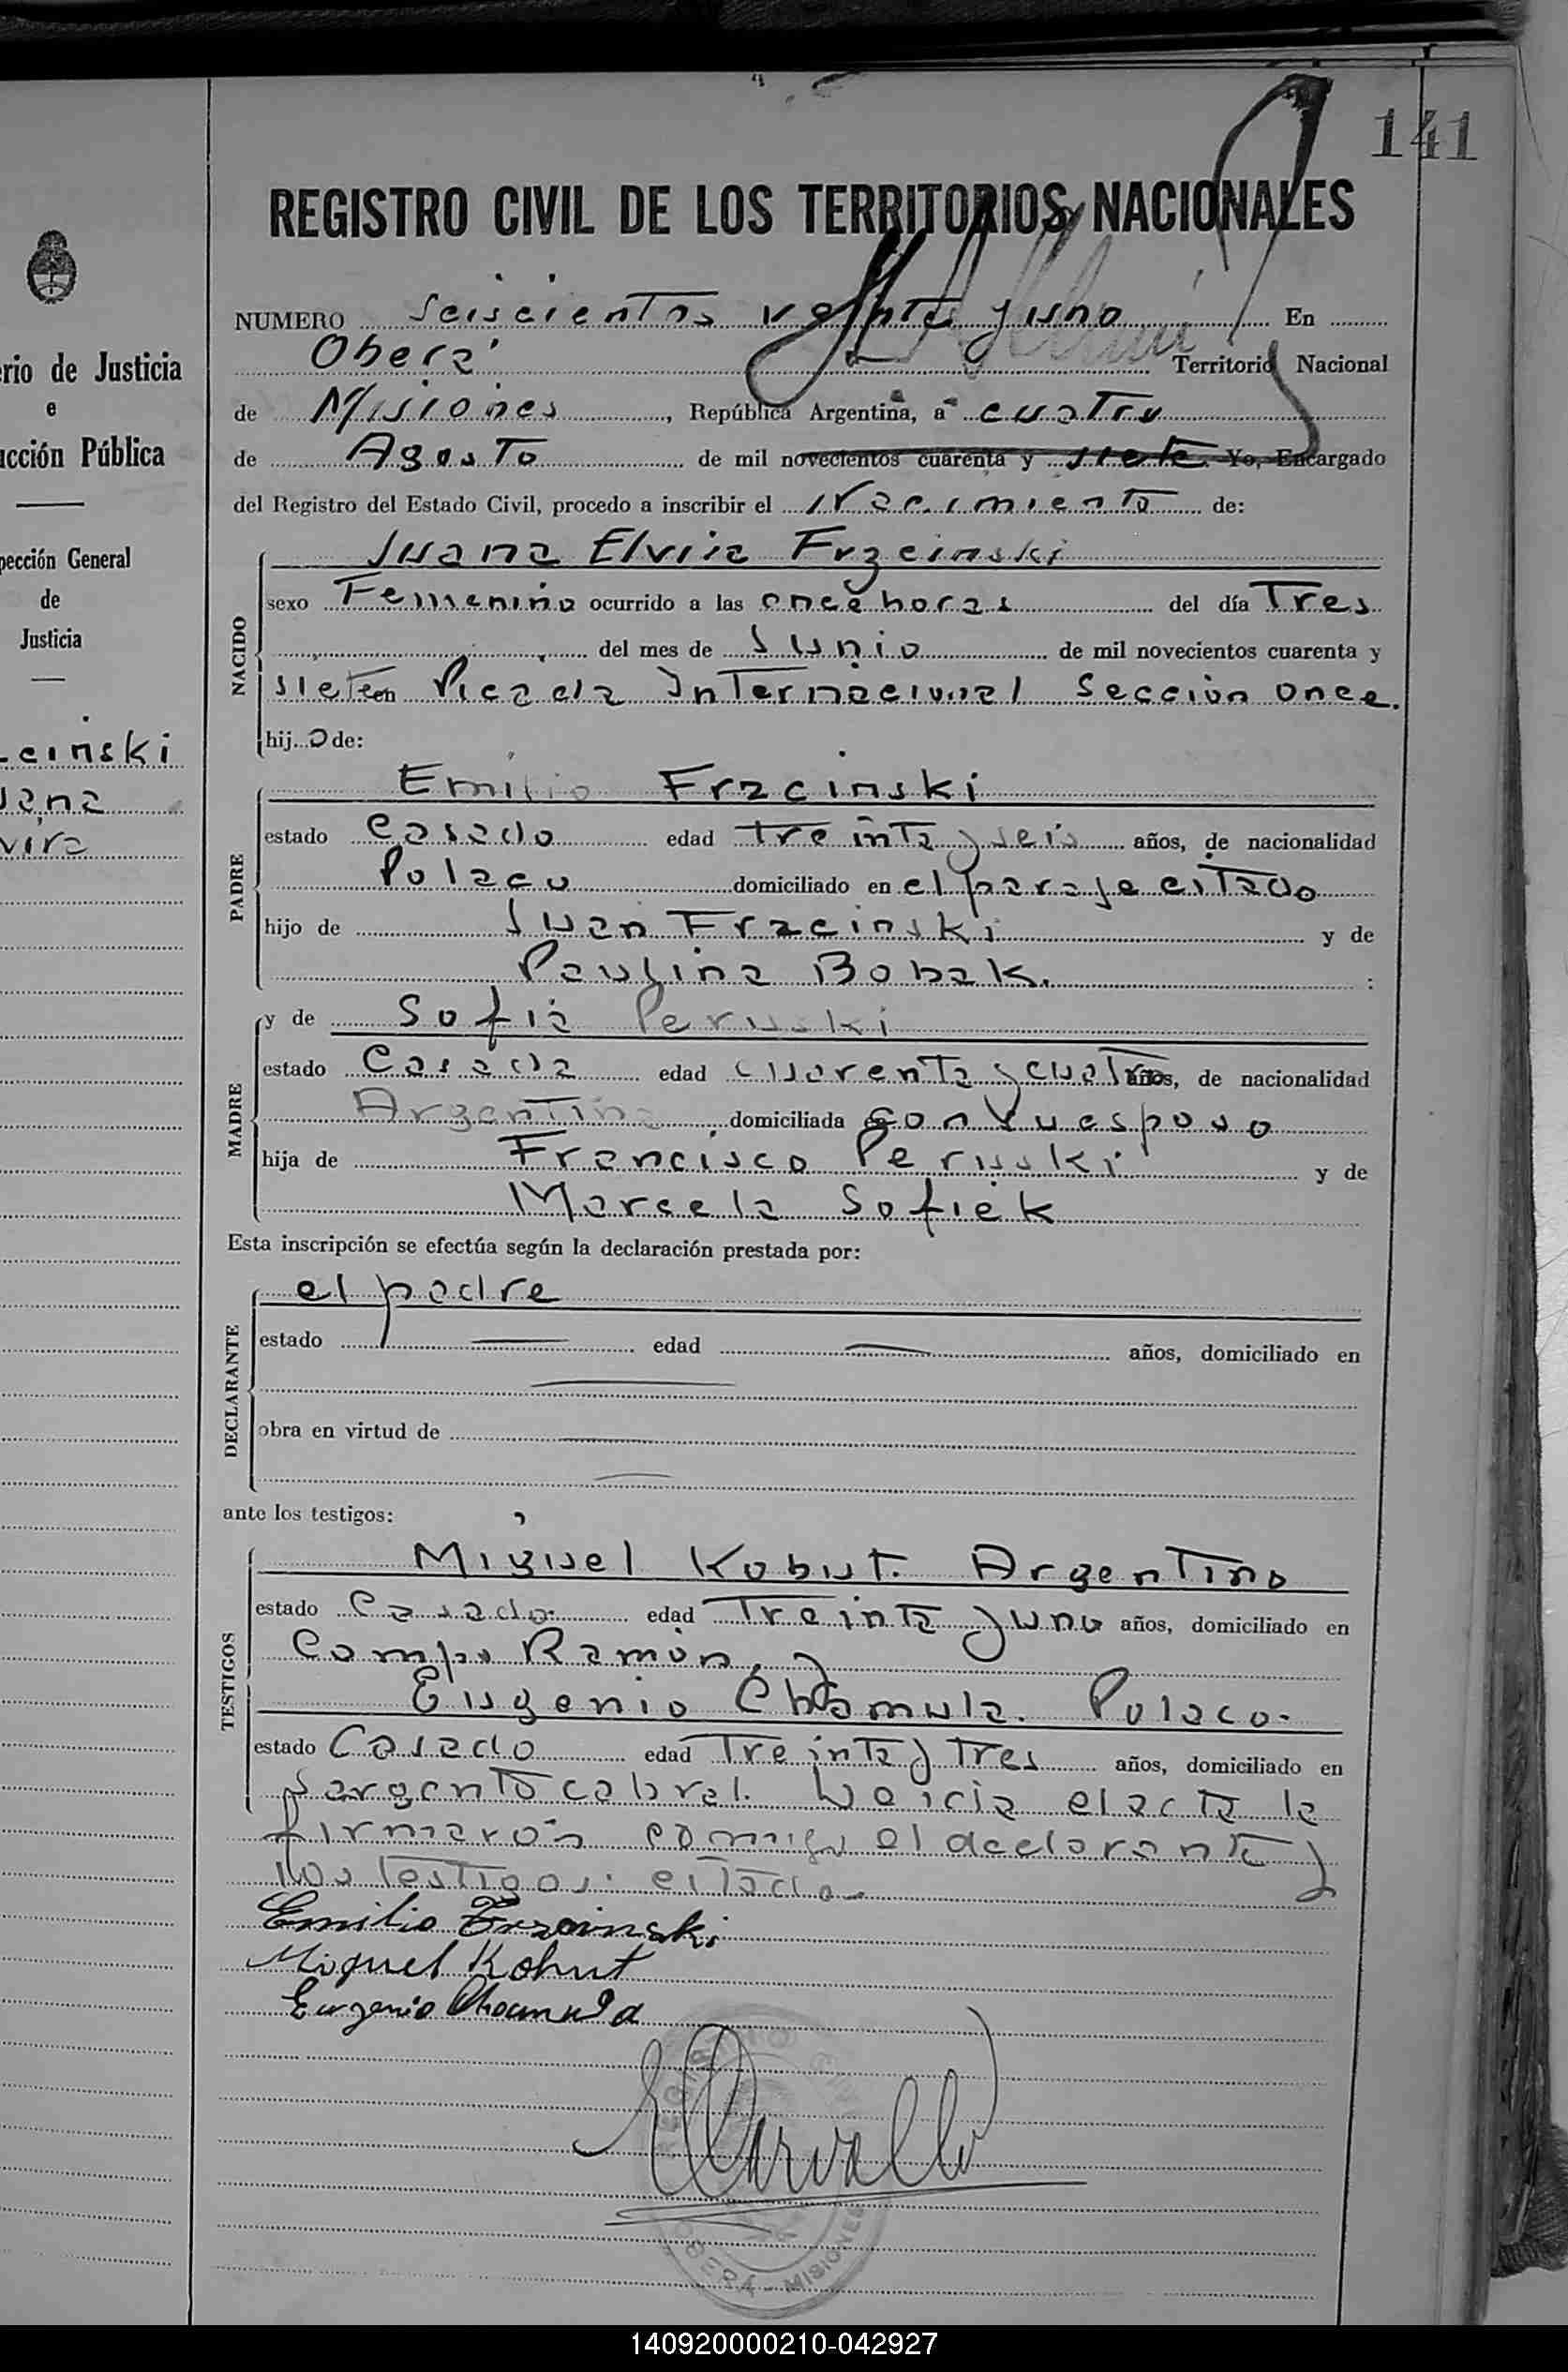 141
REGISTRO CIVIL DE LOS TERRITORIOS NACIONALES
NUMERO Seiscientos veinte y uno En
Oberá Territorio Nacional
de Misiones, República Argentina, a cuatro
de Agosto de mil novecientos cuarenta y siete. Yo, Encargado
del Registro del Estado Civil, procedo a inscribir el Nacimiento de:
NACIDO
Juana Elvira Frzcinski
sexo Femenino ocurrido a las once horas del día Tres
del mes de Junio de mil novecientos cuarenta y
siete en Picada Internacional Sección once.
hijo de:
PADRE
Emilio Frzcinski
estado Casado edad treinta y seis años, de nacionalidad
Polaco domiciliado en el paraje citado
hijo de Juan Frzcinski y de
Paulina Bobak.
MADRE
y de Sofia Peruski
estado Casada edad cuarenta y cuatro años, de nacionalidad
Argentina domiciliada con su esposo
hija de Francisco Peruski y de
Marcela Sofiek
Esta inscripción se efectúa según la declaración prestada por:
DECLARANTE
el padre
estado edad años, domiciliado en
obra en virtud de
ante los testigos:
TESTIGOS
Miguel Kohut. Argentino
estado Casado. edad Treinta y uno años, domiciliado en
Campo Ramón, y
Eugenio Chamula. Polaco.
estado Casado edad Treinta y Tres años, domiciliado en
Sargento cabral. el acta la
firmaron conmigo el declarante y
los testigos citado
Emilio Frzcinski
Miguel Kohut
Eugenio Chamula
Carvallo
OBERÁ - MISIONES
erio de Justicia
e
ucción Pública
pección General
de
Justicia
cinski
uana
vira
140920000210-042927